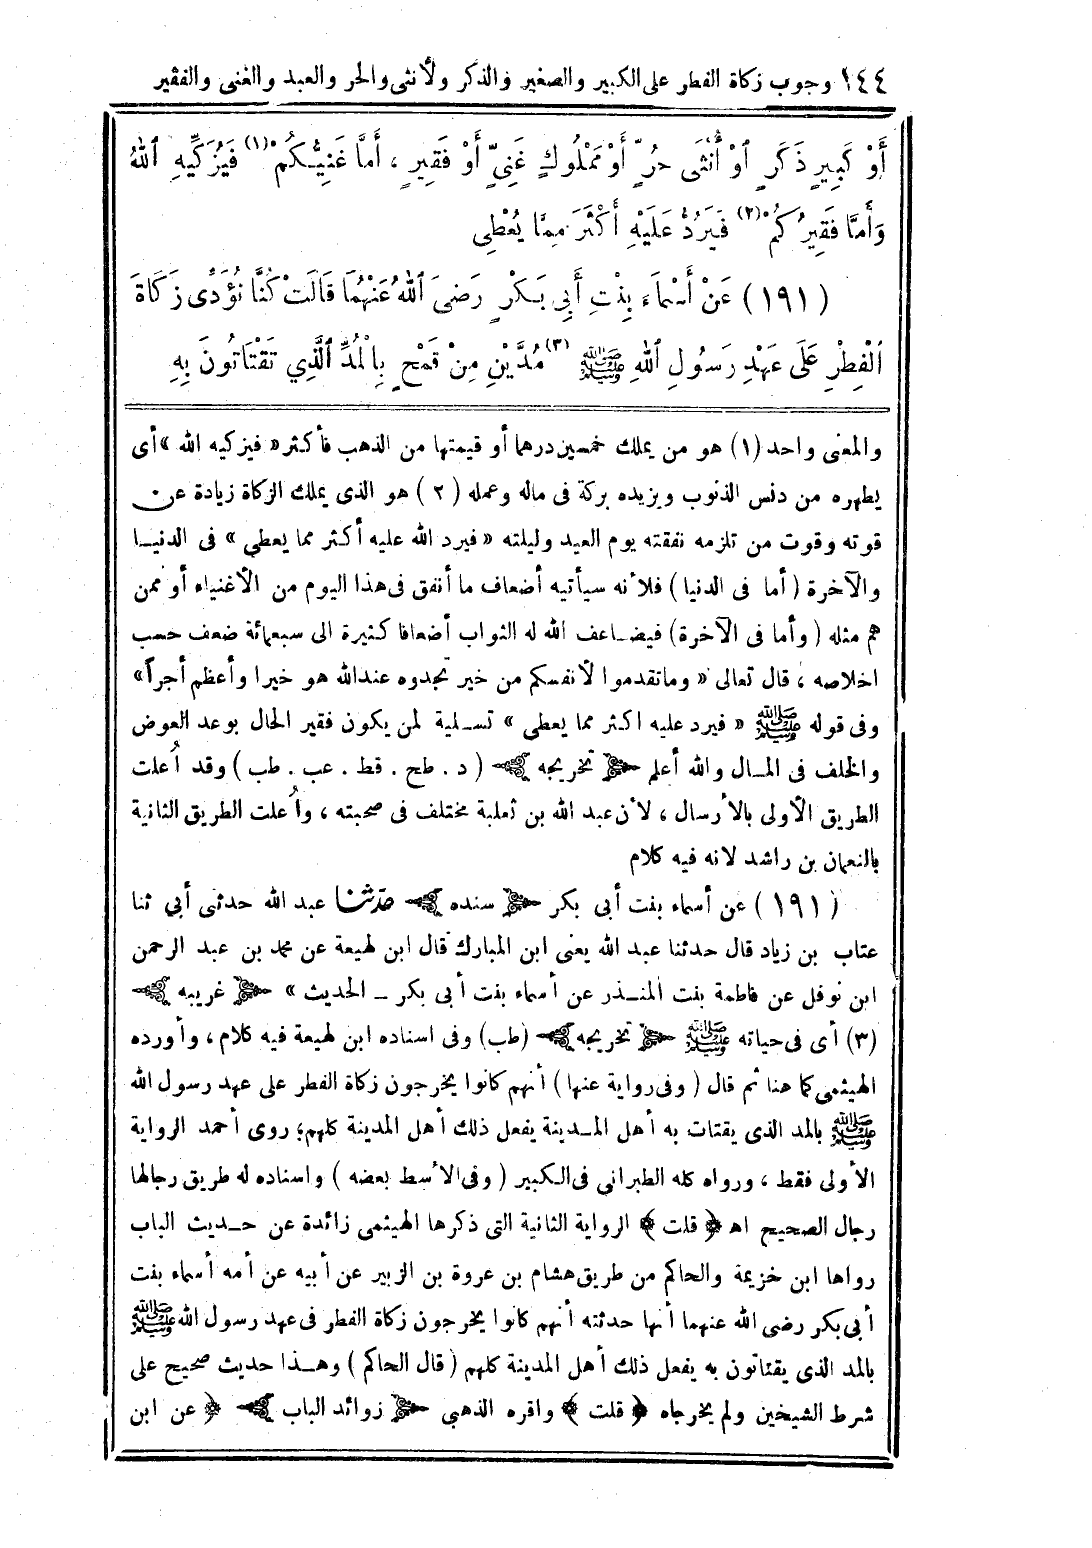 ١٤٤ وجوب زكاة الفطر على الكبير والصغير والذكر ولأنثى والحر والعبد والغنى والفقير
أَوْ كَبِيرٍ ذَكَرٍ أوْ أُنْثَى حُرٍّ أَوْ مَمْلُوكٍ غَنِيٍّ أَوْ فَقِيرٍ ، أَمَّا غَنِيُّكُمْ (١) فَيُزَكِّيهِ اللهُ
وَأَمَّا فَقِيرُكُمْ (٢) فَيَرُدُّ عَلَيْهِ أَكْثَرَ مِمَّا يُعْطِى
(١٩١) عَنْ أَسْمَاءَ بِنْتِ أَبِى بَكْرٍ رَضِىَ اللهُ عَنْهُمَا قَالَتْ كُنَّا نُؤَدِّى زَكَاةَ
الْفِطْرِ عَلَى عَهْدِ رَسُولِ اللهِ ﷺ (٣) مُدَّيْنِ مِنْ قَمْحٍ بِالْمُدِّ الَّذِي تَقْتَاتُونَ بِهِ
والمعنى واحد (١) هو من يملك خمسين درهما أو قيمتها من الذهب فأكثر « فيزكيه الله » أى
يطهره من دنس الذنوب ويزيده بركة فى ماله وعمله (٢) هو الذى يملك الزكاة زيادة عن
قوته وقوت من تلزمه نفقته يوم العيد وليلته « فيرد الله عليه أكثر مما يعطي » فى الدنيا
والآخرة ( أما فى الدنيا ) فلأنه سيأتيه أضعاف ما أنفق فى هذا اليوم من الأغنياء أو ممن
هم مثله ( وأما فى الآخرة ) فيضاعف الله له الثواب أضعافا كثيرة الى سبعمائة ضعف حسب
اخلاصه ، قال تعالى « وماتقدموا لأنفسكم من خير تجدوه عندالله هو خيرا وأعظم أجراً »
وفى قوله ﷺ « فيرد عليه اكثر مما يعطى » تسلية لمن يكون فقير الحال بوعد العوض
والخلف فى المال والله أعلم ﴿ تخريجه ﴾ ( د . طح . قط . عب . طب ) وقد أُعلت
الطريق الأولى بالأرسال ، لأن عبد الله بن ثعلبة مختلف فى صحبته ، وأُعلت الطريق الثانية
بالنعمان بن راشد لانه فيه كلام
(١٩١) عن أسماء بنت أبى بكر ﴿ سنده ﴾ حدثنا عبد الله حدثنى أبي ثنا
عتاب بن زياد قال حدثنا عبد الله يعنى ابن المبارك قال ابن لهيعة عن محمد بن عبد الرحمن
ابن نوفل عن فاطمة بنت المنذر عن أسماء بنت أبى بكر ـ الحديث » ﴿ غريبه ﴾
(٣) أى فى حياته ﷺ ﴿ تخريجه ﴾ (طب) وفى اسناده ابن لهيعة فيه كلام ، وأورده
الهيثمى كما هنا ثم قال ( وفى رواية عنها ) أنهم كانوا يخرجون زكاة الفطر على عهد رسول الله
ﷺ بالمد الذى يقتات به أهل المدينة يفعل ذلك أهل المدينة كلهم؛ روى أحمد الرواية
الأولى فقط ، ورواه كله الطبرانى فى الكبير ( وفى الأسط بعضه ) واسناده له طريق رجالها
رجال الصحيح اه ﴿ قلت ﴾ الرواية الثانية التى ذكرها الهيثمى زائدة عن حديث الباب
رواها ابن خزيمة والحاكم من طريق هشام بن عروة بن الزبير عن أبيه عن أمه أسماء بنت
أبى بكر رضى الله عنهما أنها حدثته أنهم كانوا يخرجون زكاة الفطر فى عهد رسول الله ﷺ
بالمد الذى يقتاتون به يفعل ذلك أهل المدينة كلهم ( قال الحاكم ) وهذا حديث صحيح على
شرط الشيخين ولم يخرجاه ﴿ قلت ﴾ واقره الذهبي ﴿ زوائد الباب ﴾ ﴿ عن ابن